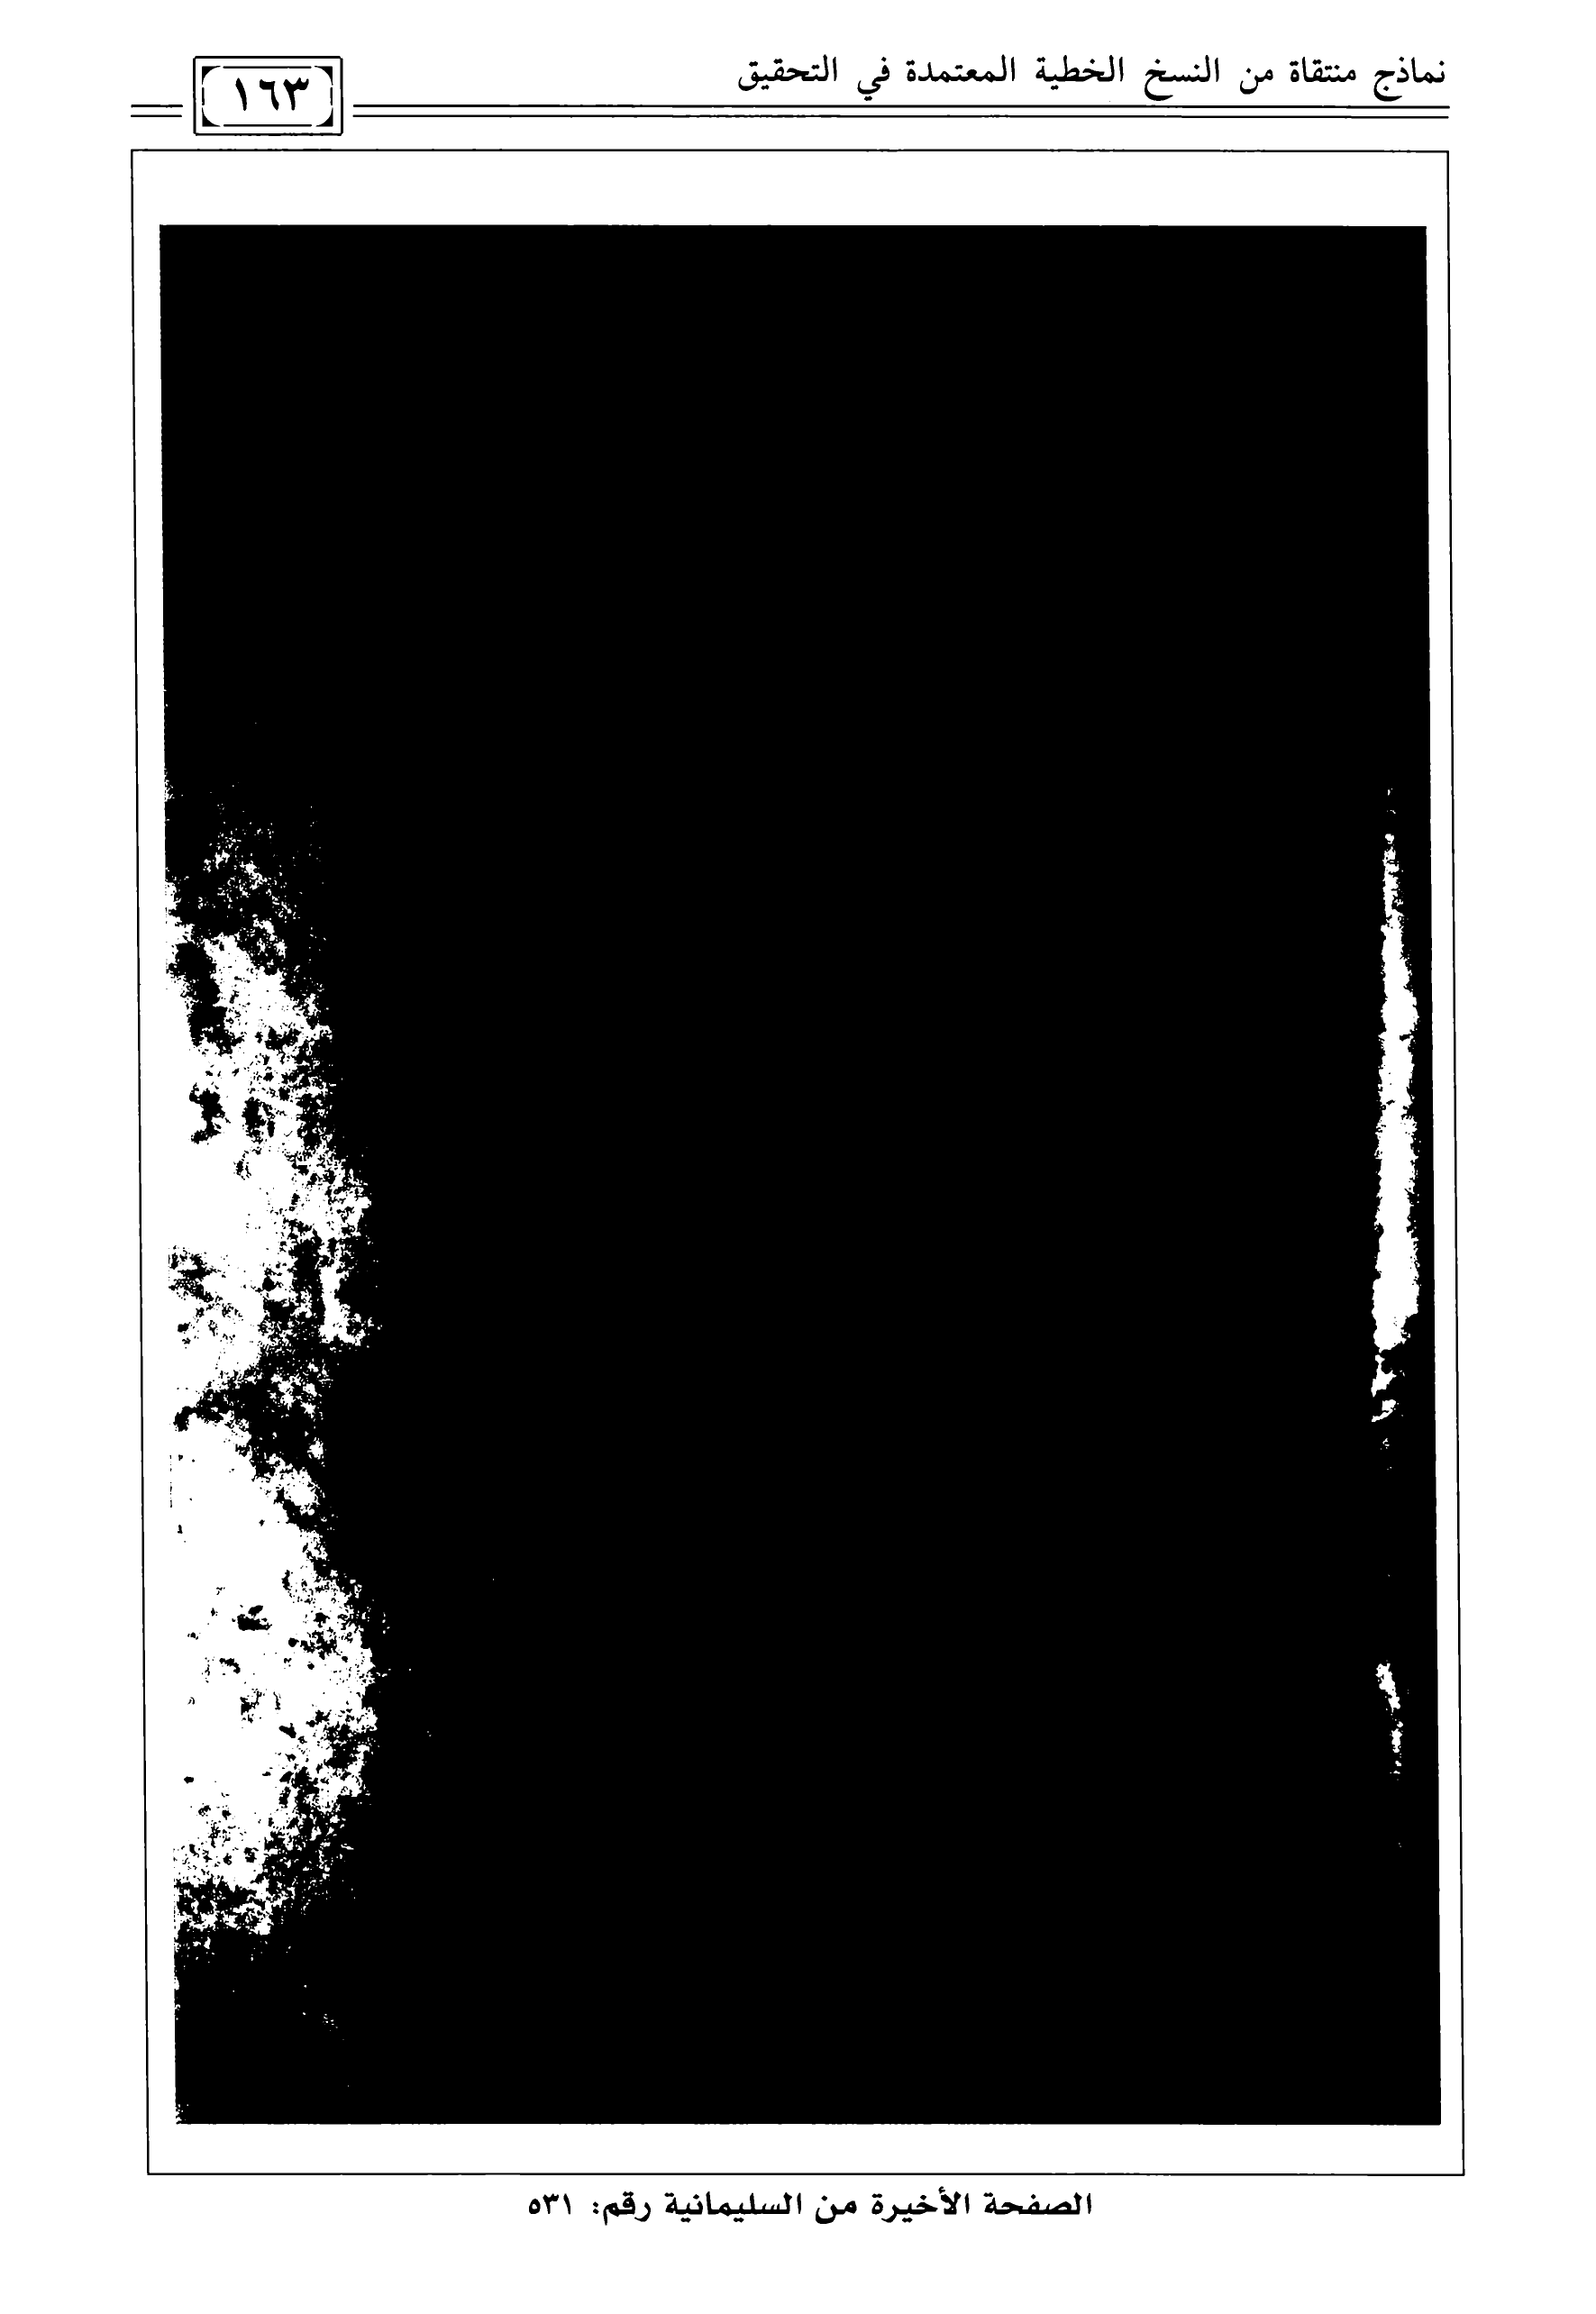 نماذج منتقاة من النسخ الخطية المعتمدة في التحقيق
١٦٣
الصفحة الأخيرة من السليمانية رقم: ٥٣١